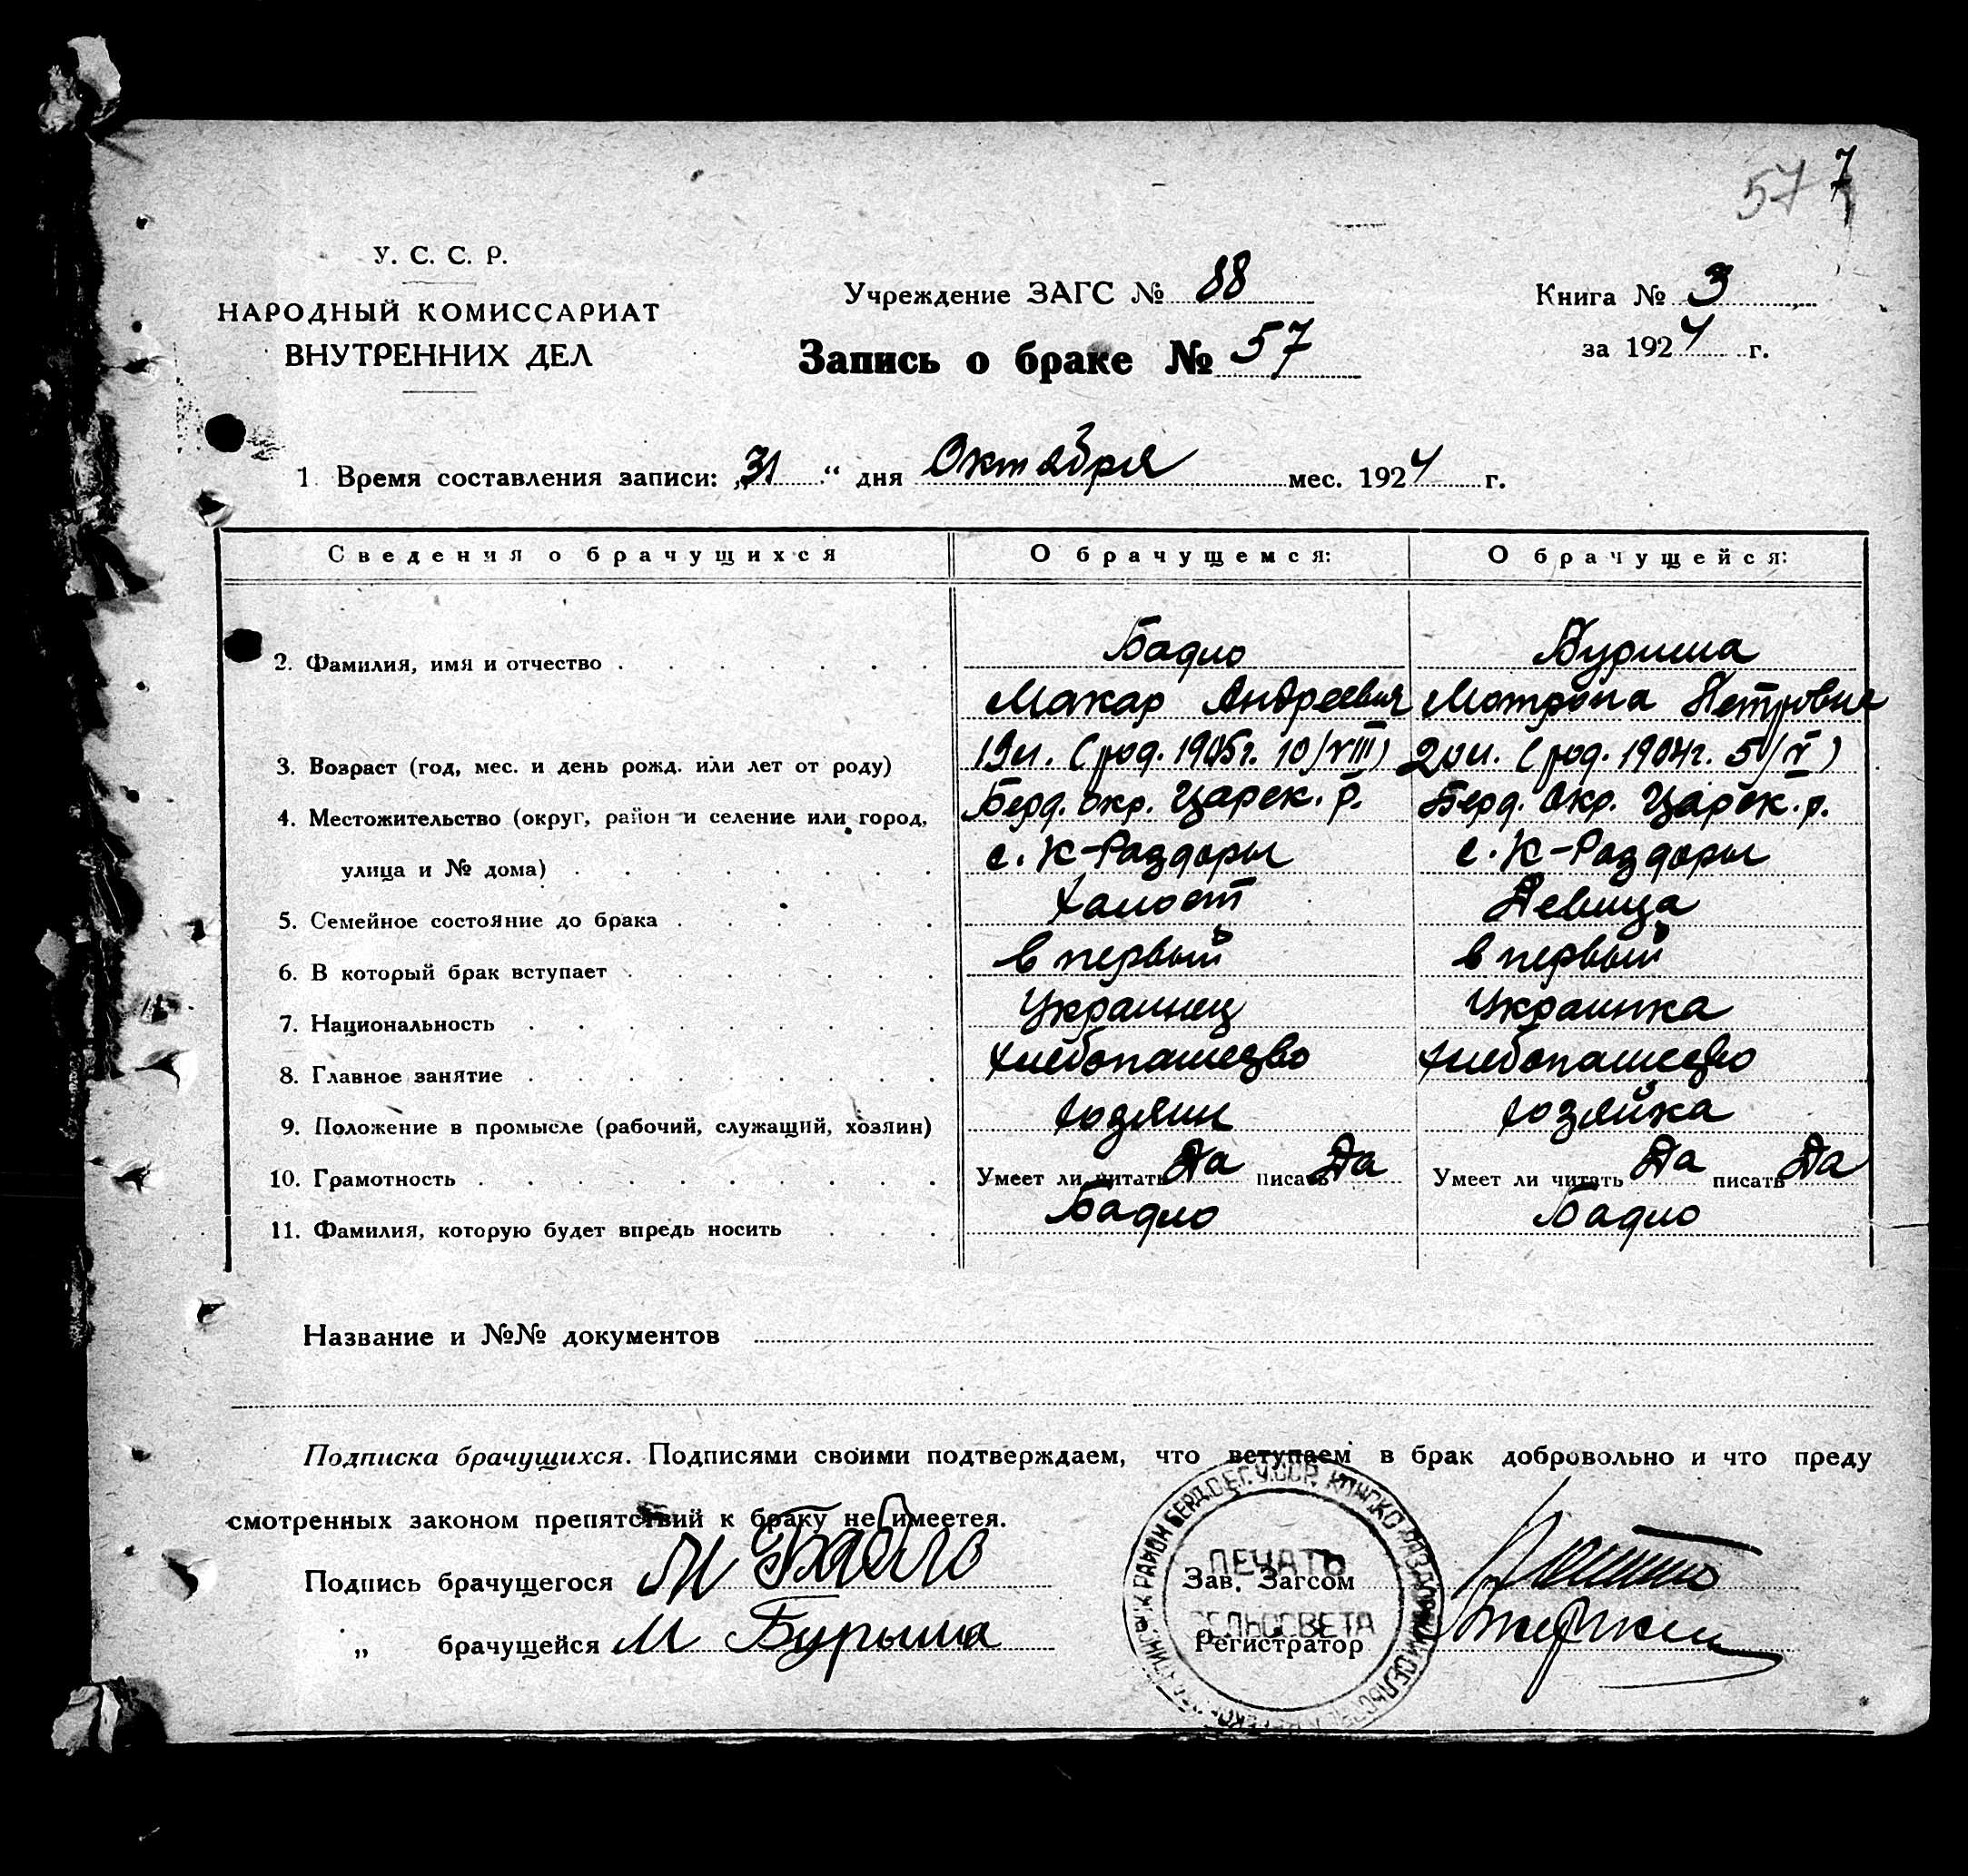 57 7
У. С. С. Р.
НАРОДНЫЙ КОМИССАРИАТ
ВНУТРЕННИХ ДЕЛ
Учреждение ЗАГС № 88
Запись о браке № 57
Книга № 3
за 1924 г.
1 Время составления записи: „31“ дня Октября мес. 1924 г.
Сведения о брачущихся О брачущемся: О брачущейся:
2. Фамилия, имя и отчество Бадло Бурыма
Макар Андреевич Мотрона Петровна
3. Возраст (год, мес. и день рожд. или лет от роду) 19 л. (род. 1905г. 10/VIII) 20 л. (род. 1904г. 5/V)
4. Местожительство (округ, район и селение или город, Берд. окр. Царек. р. Берд. Окр. Царек. р.
улица и № дома) с. К-Раздоры с. К-Раздоры
5. Семейное состояние до брака Холост Девица
6. В который брак вступает в первый в первый
7. Национальность Украинец Украинка
8. Главное занятие хлебопашество хлебопашество
9. Положение в промысле (рабочий, служащий, хозяин) хозяин хозяйка
10. Грамотность Умеет ли читать Да писать Да Умеет ли читать Да писать Да
11. Фамилия, которую будет впредь носить Бадло Бадло
Название и №№ документов
Подписка брачущихся. Подписями своими подтверждаем, что вступаем в брак добровольно и что преду
смотренных законом препятствий к браку не имеется.
Подпись брачущегося М Бадло Зав. Загсом
„ брачущейся М Бурыма Регистратор
ПЕЧАТЬ
СЕЛЬСОВЕТА